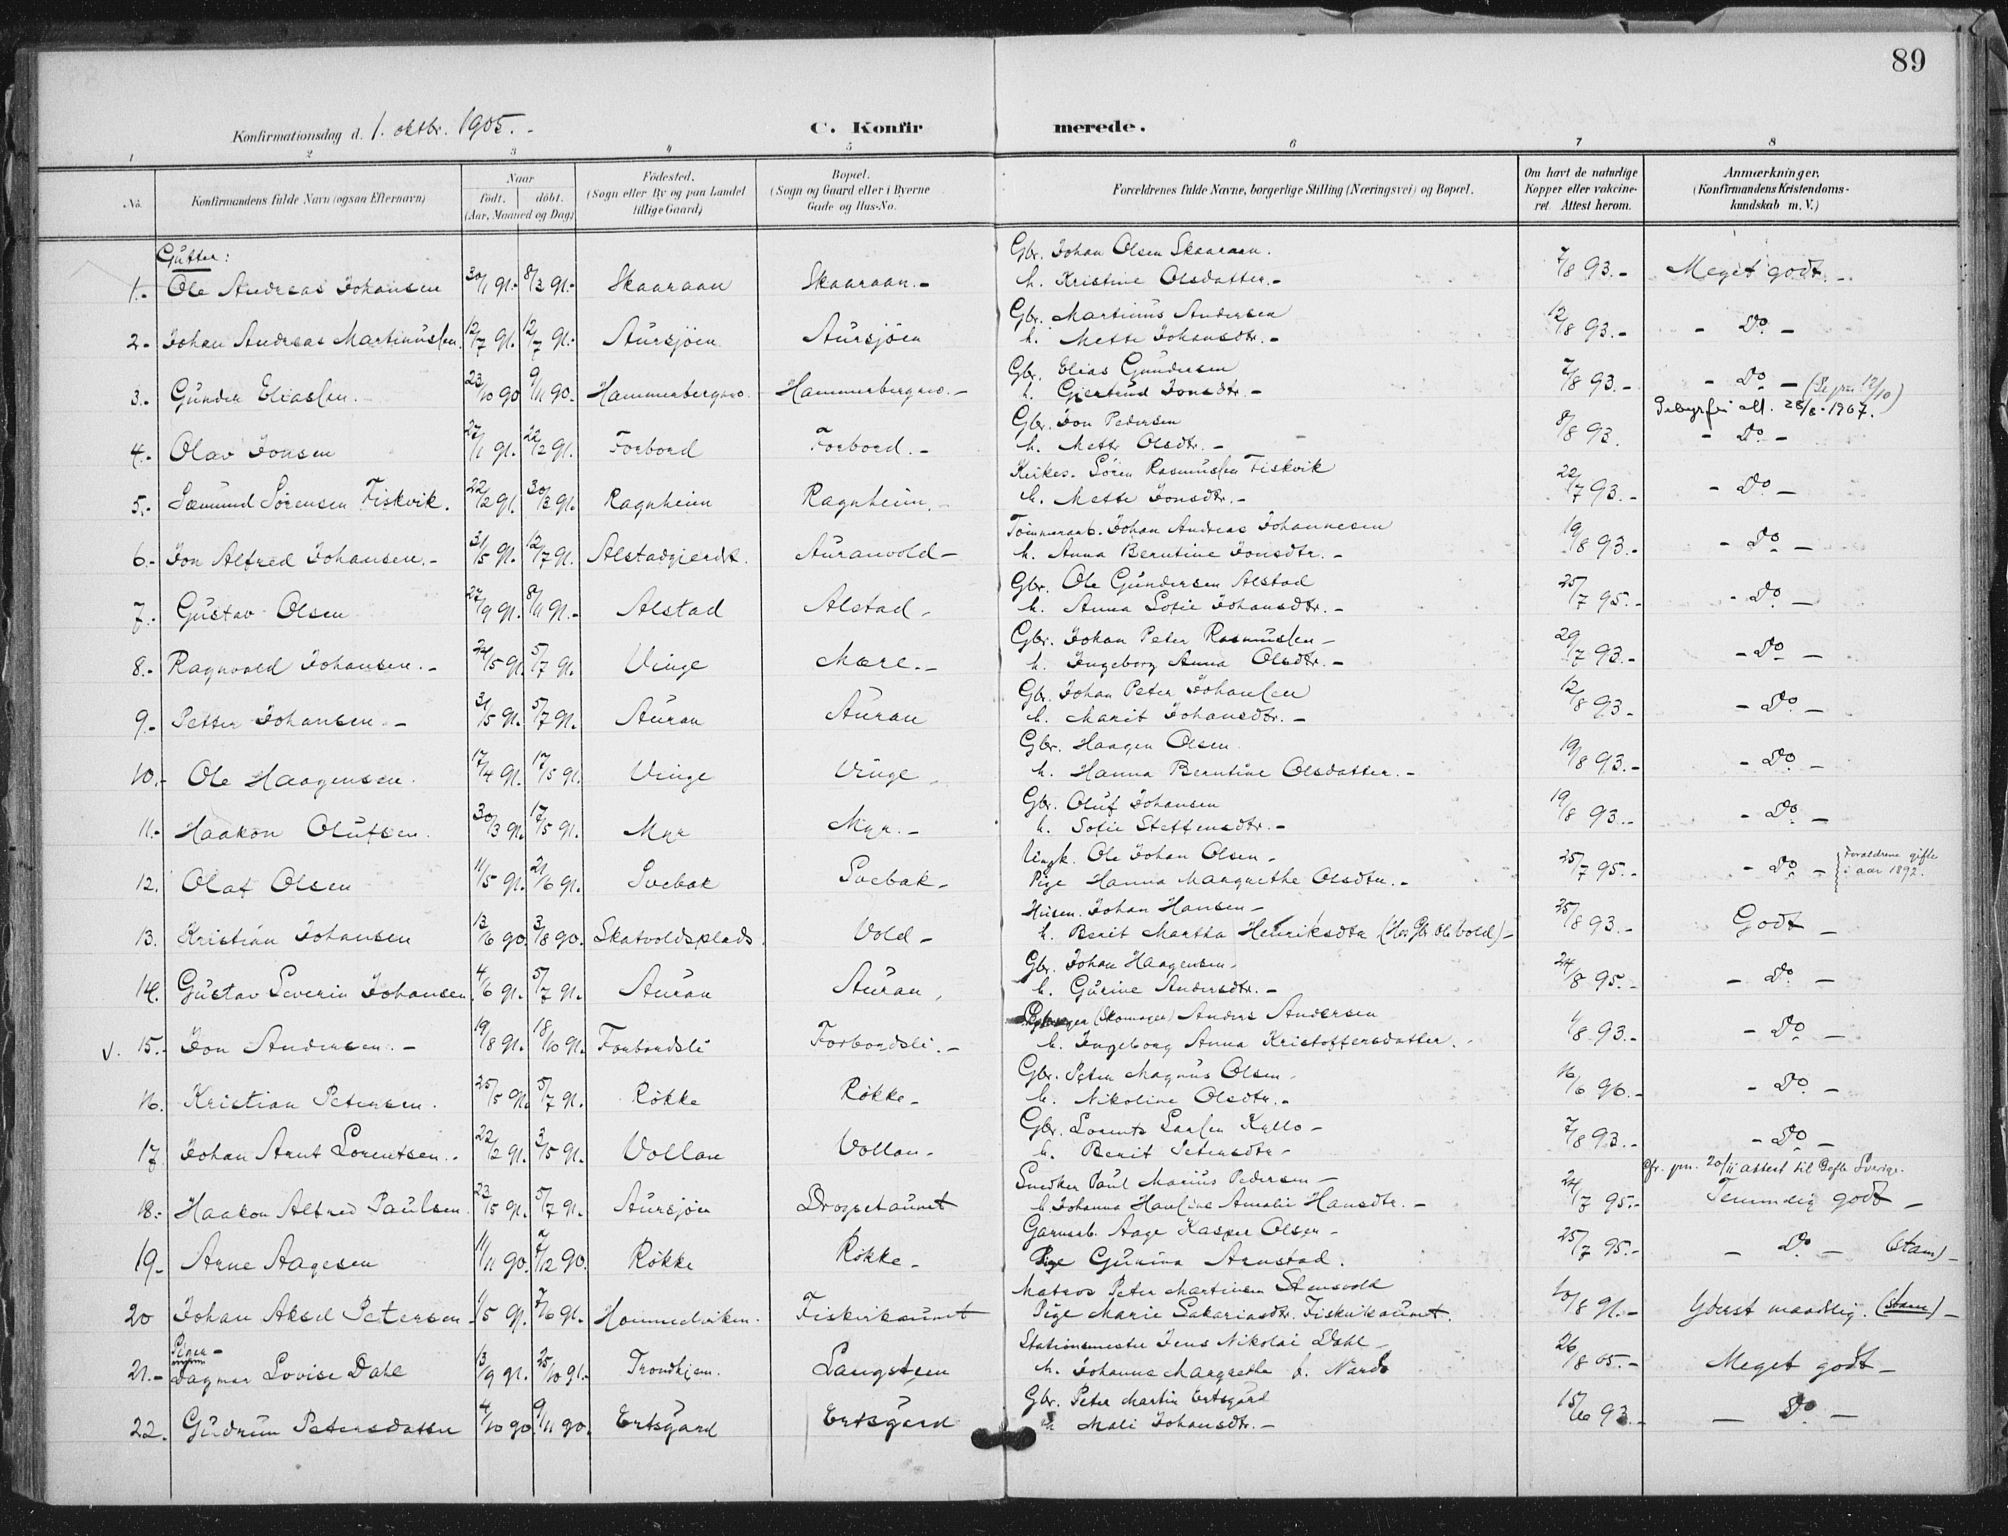 89
Konfirmationsdag d. 1. oktbr. 1905. -
C. Konfirmerede.
1 2 3 4 5 6 7 8
No. Konfirmandens fulde Navn (ogsaa Efternavn) Naar født. døbt. (Aar, Maaned og Dag) Fødested. (Sogn eller By og paa Landet tillige Gaard) Bopæl. (Sogn og Gaard eller i Byerne Gade og Hus-No. Forældrenes fulde Navne, borgerlige Stilling (Næringsvei) og Bopæl. Om havt de naturlige Kopper eller vakcineret. Attest herom. Anmærkninger. (Konfirmandens Kristendomskundskab m. V.)
Gutter:
Gbr. Johan Olsen Skaaraan.
1.- Ole Andreas Johansen 30/1 91.- 8/3 91.- Skaaraan Skaaraan.- h. Kristine Olsdatter.- 7/8 93.- Meget godt.-
Gbr. Martinus Andersen
2.- Johan Andreas Martinussen. 12/7 91. 12/7 91.- Aursjöen Aursjöen h. Mette Johansdtr.- 12/8 93.- - Do -
Gbr. Elias Gundersen
3.- Gunder Eliassen. 23/10 90 9/11 90. Hammerbergmo. Hammerbergmo.- h. Gjertrud Jonsdtr.- 7/8 93.- - Do -
28/8-1907.
Gbr. Jon Pedersen
4.- Olav Jonsen 27/1 91. 22/2 91. Forbord Forbord.- h. Mette Olsdtr.- 8/8 93. - Do -
Kirkes. Sören Rasmussen Fiskvik
5.- Sæmund Sörensen Fiskvik. 22/2 91. 30/3 91. Ragnheim Ragnheim.- h. Mette Jonsdtr.- 22/7 93.- - Do -
Tömmerarb. Johan Andreas Johannesen
6.- Jon Alfred Johansen.- 31/5 91. 12/7 91. Alstadgjerdt. Auranvold- h. Anna Berntine Jonsdtr.- 19/8 93.- - Do -
Gbr. Ole Gundersen Alstad
7.- Gustav Olsen 27/9 91. 8/11 91.- Alstad Alstad- h. Anna Sofie Johansdtr.- 25/7 95.- - Do -
Gbr. Johan Peter Rasmussen-
8.- Ragnvald Johansen.- 24/5 91. 5/7 91. Vinge Mære.- h. Ingeborg Anna Olsdtr.- 29/7 93.- - Do -
Gbr. Johan Peter Johansen
9.- Petter Johansen.- 31/5 91. 5/7 91. Auran Auran h. Marit Johansdtr.- 12/8 93.- - Do -
Gbr. Haagen Olsen.
10.- Ole Haagensen. 17/4 91. 17/5 91. Vinge Vinge h. Hanna Berntine Olsdatter.- 19/8 93.- - Do -
Gbr. Oluf Johansen
11.- Haakon Olufsen. 30/3 91. 17/5 91. Myr Myr.- h. Sofie Steffensdtr.- 19/8 93.- - Do -
Ungk. Ole Johan Olsen-
12. Olaf Olsen 11/5 91. 21/6 91. Svebak Svebak- Pige Hanna Margrethe Olsdtr.- 25/7 95.- - Do - Forældrene gifte i aar 1892.
Husm. Johan Hansen-
13. Kristian Johansen 13/6 90. 3/8 90. Skatvoldsplads. Vold- h. Berit Martha Henriksdtr (Hos Gbr Ole Vold)- 25/8 93.- Godt -
Gbr. Johan Haagensen-
14. Gustav Severin Johansen. 4/6 91. 5/7 91. Auran Auran h. Gurine Andersdtr.- 24/8 95.- - Do -
(Skomager) Anders Andersen
v. 15.- Jon Andersen.- 19/8 91. 18/10 91. Forbordsli Forbordsli.- h. Ingeborg Anna Kristoffersdatter. 1/8 93.- - Do -
Gbr. Peter Magnus Olsen-
16. Kristian Petersen. 25/5 91. 5/7 91. Røkke Røkke- h. Nikoline Olsdtr.- 16/6 96.- - Do -
Gbr. Lorents Larsen Kyllo-
17. Johan Arnt Lorentsen.- 22/2 91. 3/5 91. Vollan Vollan- h. Berit Petersdtr- 7/8 93.- - Do -
20/11 attest til Gefle Sverige.
Snedker Paul Marius Pedersen-
18.- Haakon Alfred Paulsen. 23/5 91. 5/7 91. Aursjöen Drogsetaunet h. Johanna Amalie Hansdtr.- 24/7 95.- Temmelig godt -
Garverarb. Aage Kasper Olsen-
19- Arne Aagesen 11/11 90. 7/12 90. Røkke Røkke- Pige Gurina Arnstad. 25/7 95.- - Do - (Stam)-
Matros Peter Martinsen Stensvold
20 Johan Aksel Petersen- 1/5 91. 7/6 91. Hommelviken. Fiskvikaunet Pige Marie Sakariasdtr. Fiskvikaunet. 10/8 91.- Yderst maadelig. (Stam)-
Piger-
Stationsmester Jens Nikolai Dahl-
21.- Dagmar Lovise Dahl 13/9 91. 25/10 91.- Trondhjem. Langsteen h. Johanna Margrethe f. Nardo 26/8 05.- Meget godt-
Gbr. Peter Martin Ertsgård
22. Gudrun Petersdatter 4/10 90. 9/11 90. Ertsgård Ertsgård h. Mali Johansdtr.- 15/6 93.- - Do -